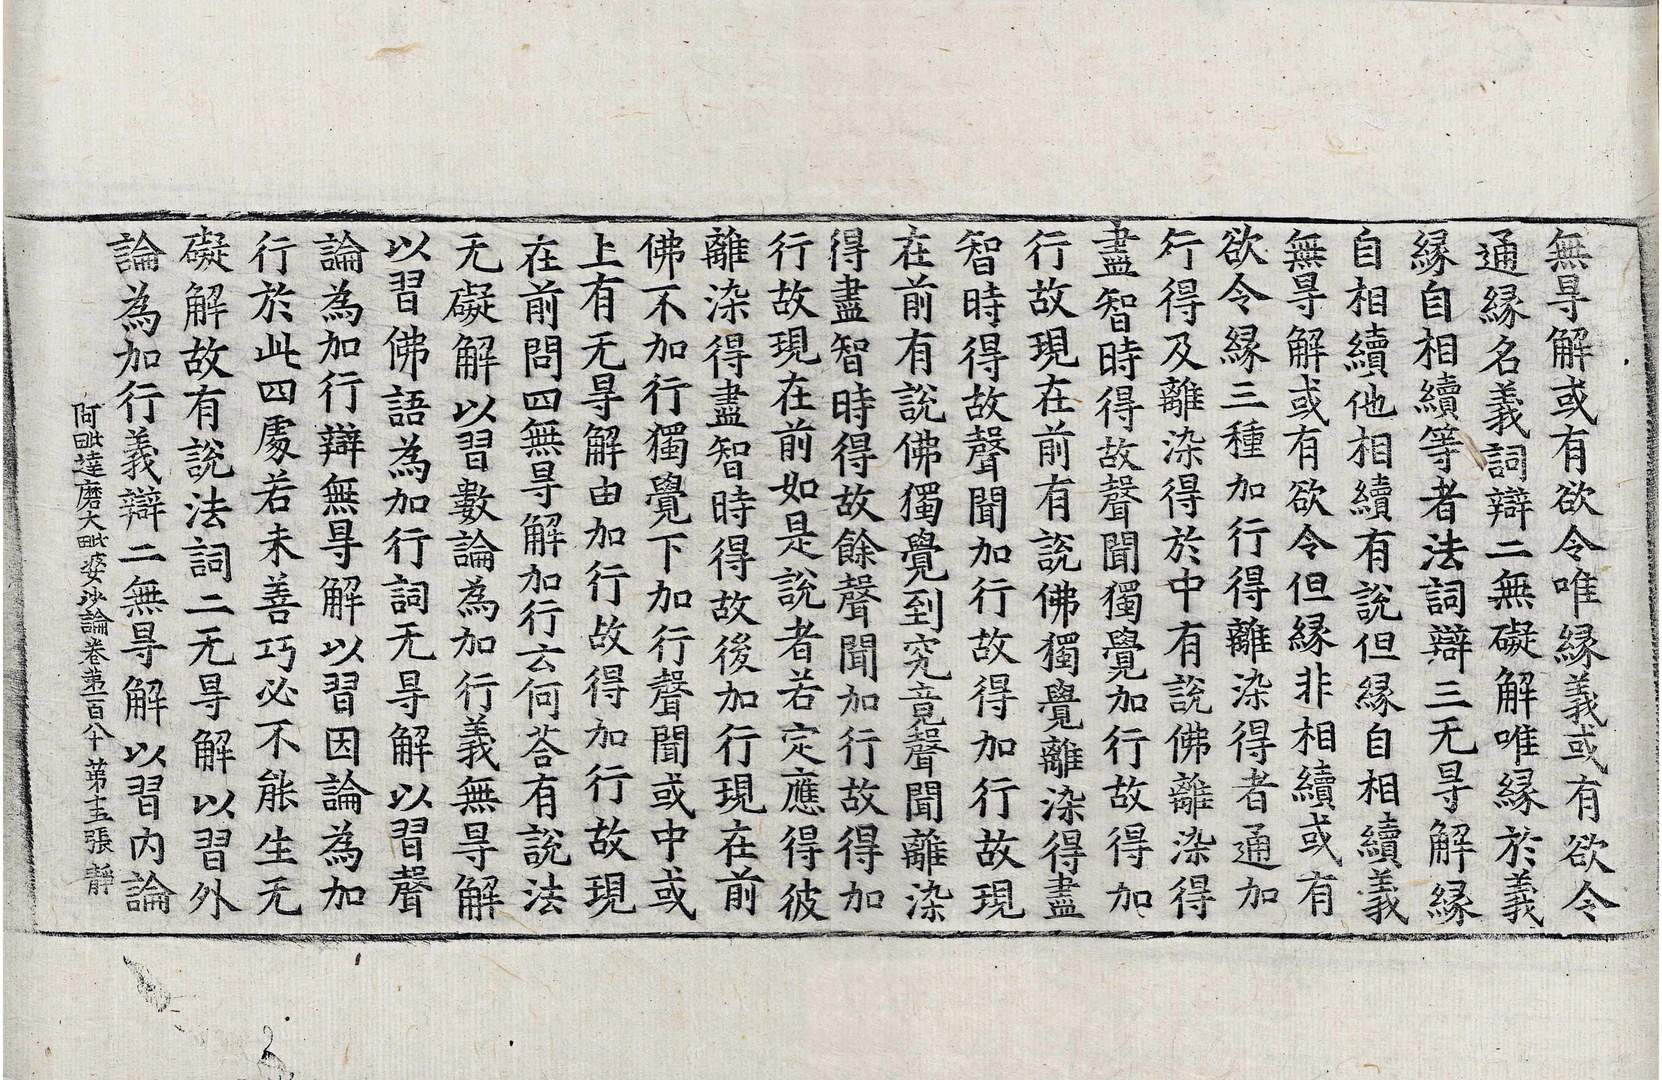 無㝵解或有欲令唯縁義或有欲令
通縁名義詞辯二無礙解唯縁於義
縁自相續等者法詞辯三无㝵解縁
自相續他相續有說但縁自相續義
無㝵解或有欲令但縁非相續或有
欲令縁三種加行得離染得者通加
行得及離染得於中有說佛離染得
盡智時得故聲聞獨覺加行故得加
行故現在前有說佛獨覺離染得盡
智時得故聲聞加行故得加行故現
在前有說佛獨覺到究竟聲聞離染
得盡智時得故餘聲聞加行故得加
行故現在前如是說者若定應得彼
離染得盡智時得故後加行現在前
佛不加行獨覺下加行聲聞或中或
上有无㝵解由加行故得加行故現
在前問四無㝵解加行云何荅有說法
无礙解以習數論為加行義無㝵解
以習佛語為加行詞无㝵解以習聲
論為加行辯無㝵解以習因論為加
行於此四處若未善巧必不能生无
礙解故有說法詞二无㝵解以習外
論為加行義辯二無㝵解以習內論
阿毗達磨大毗婆沙論卷第一百八十 苐十五張 靜